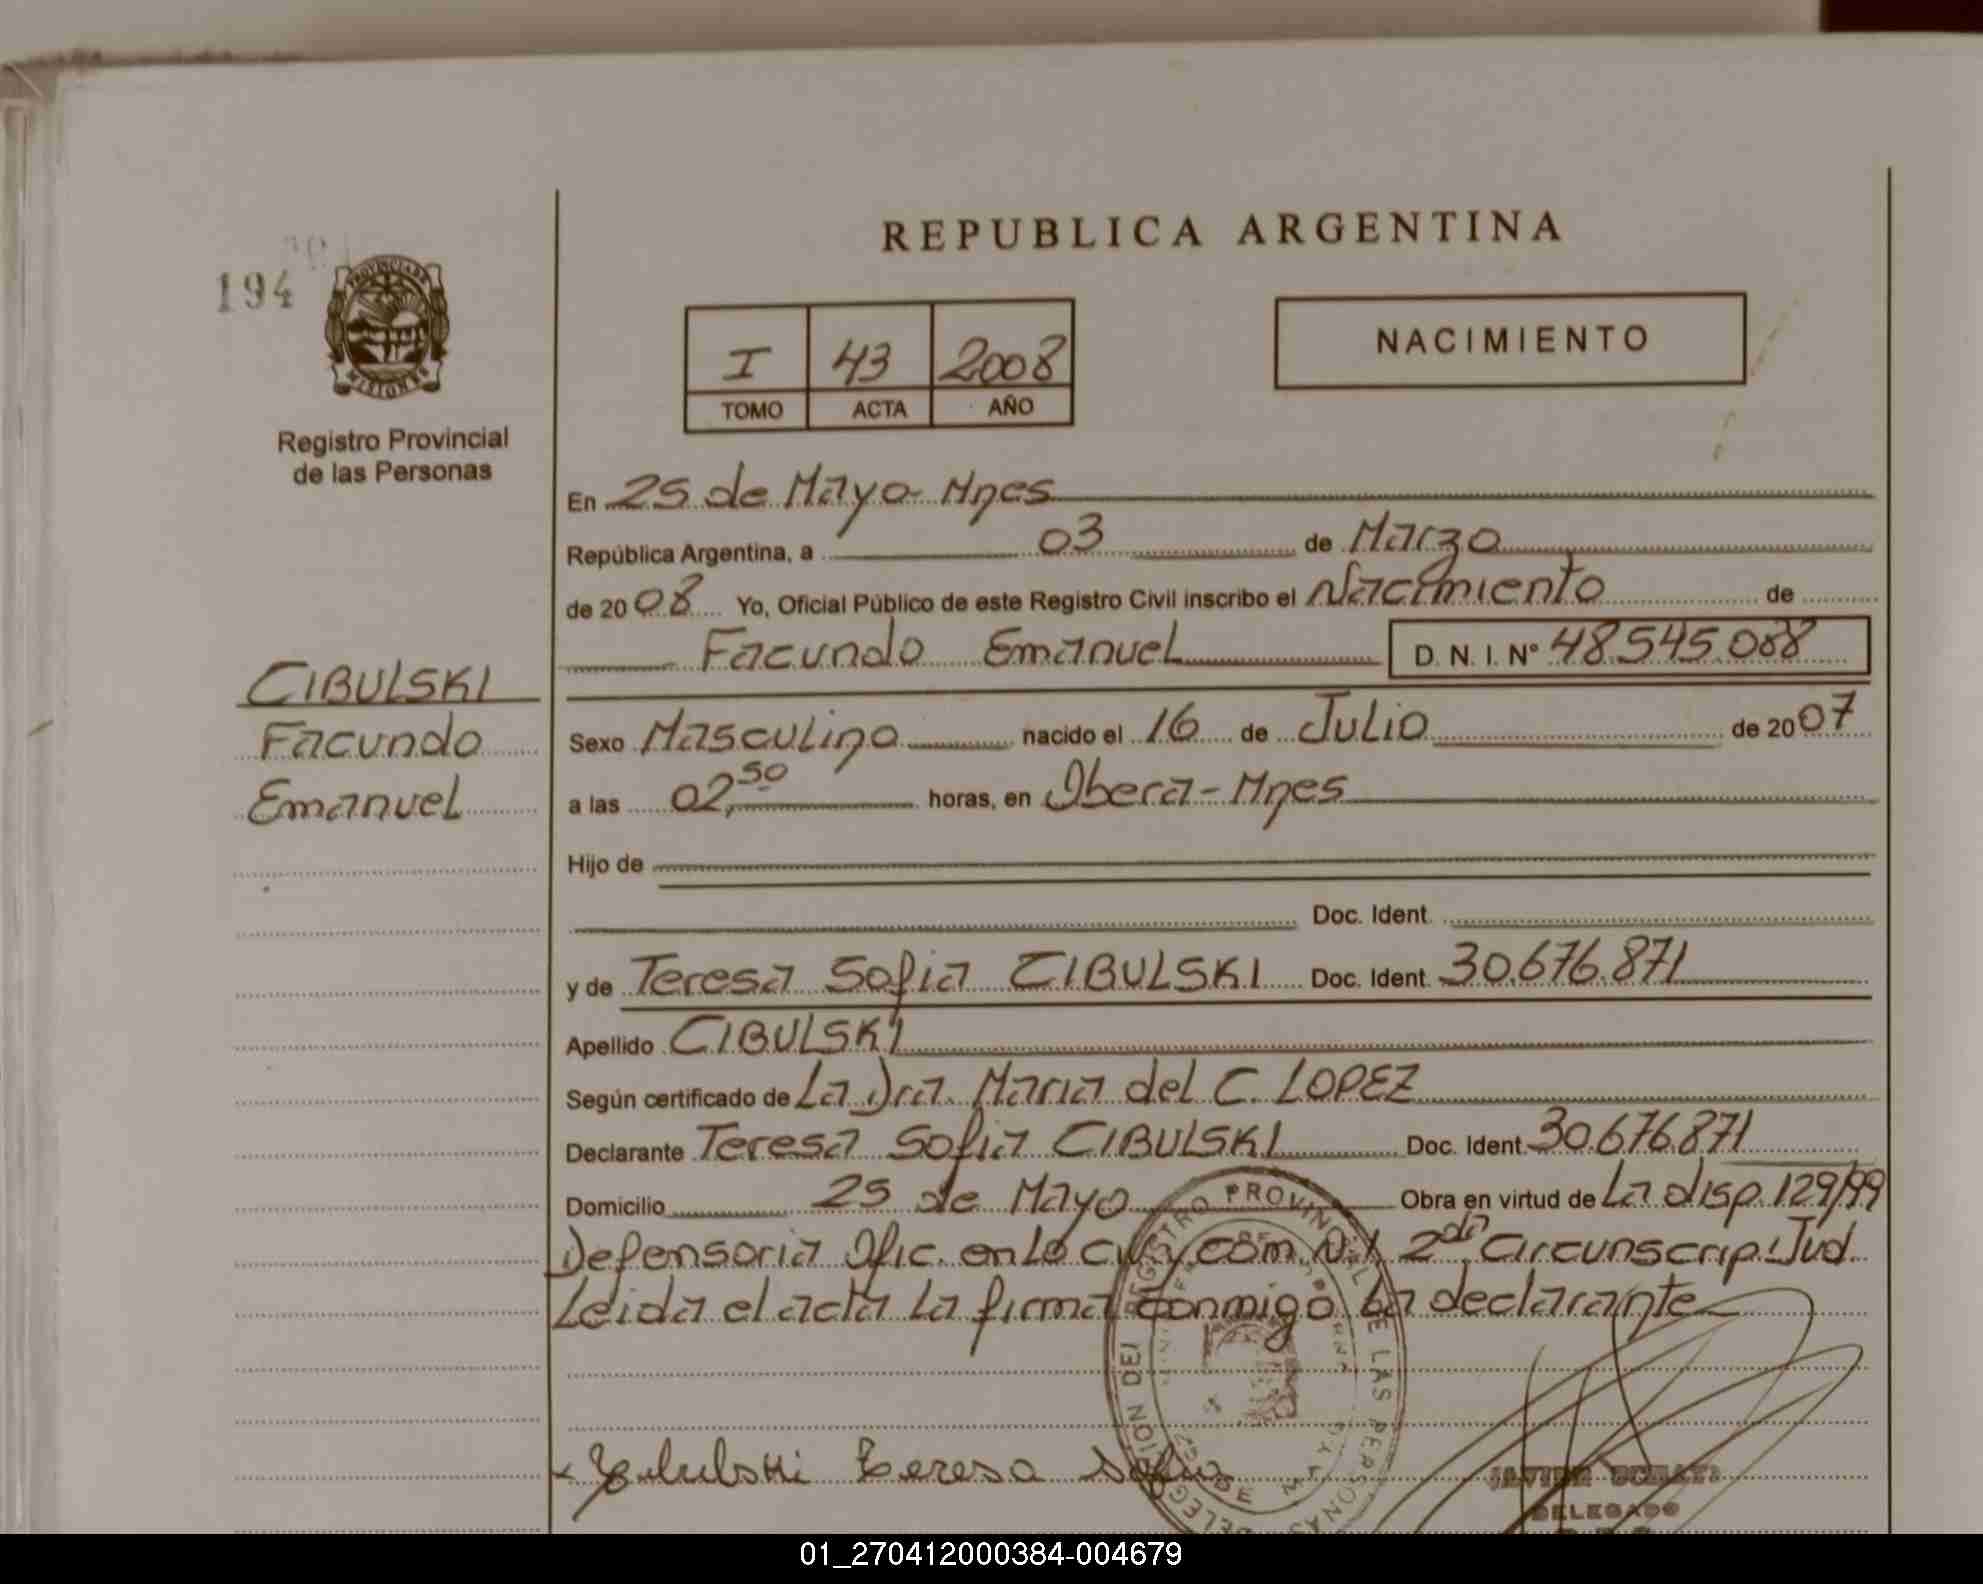 REPUBLICA ARGENTINA
194
PROVINCIA DE
MISIONES
Registro Provincial
de las Personas
I 43 2008
TOMO ACTA AÑO
NACIMIENTO
En 25 de Mayo - Mnes
República Argentina, a 03 de Marzo
de 2008 Yo, Oficial Público de este Registro Civil inscribo el Nacimiento de
Facundo Emanuel D. N. I. Nº 48.545.088
CIBULSKI
Facundo
Emanuel
Sexo Masculino nacido el 16 de Julio de 2007
a las 02,50 horas, en Obera - Mnes
Hijo de
Doc. Ident.
y de Teresa Sofia CIBULSKI Doc. Ident. 30.676.871
Apellido CIBULSKI
Según certificado de La Dra. Maria del C. LOPEZ
Declarante Teresa Sofia CIBULSKI Doc. Ident. 30.676.871
Domicilio 25 de Mayo Obra en virtud de La disp. 129/99
Defensoria Ofic. en Lo Civ. y Com. N. 1 2da Circunscrip. Jud.
Leida el acta La firma conmigo La declarante
Cibulski Teresa Sofia
DELEGACION DEL REGISTRO PROVINCIAL DE LAS PERSONAS
25 DE MAYO
DELEGADO
01_270412000384-004679